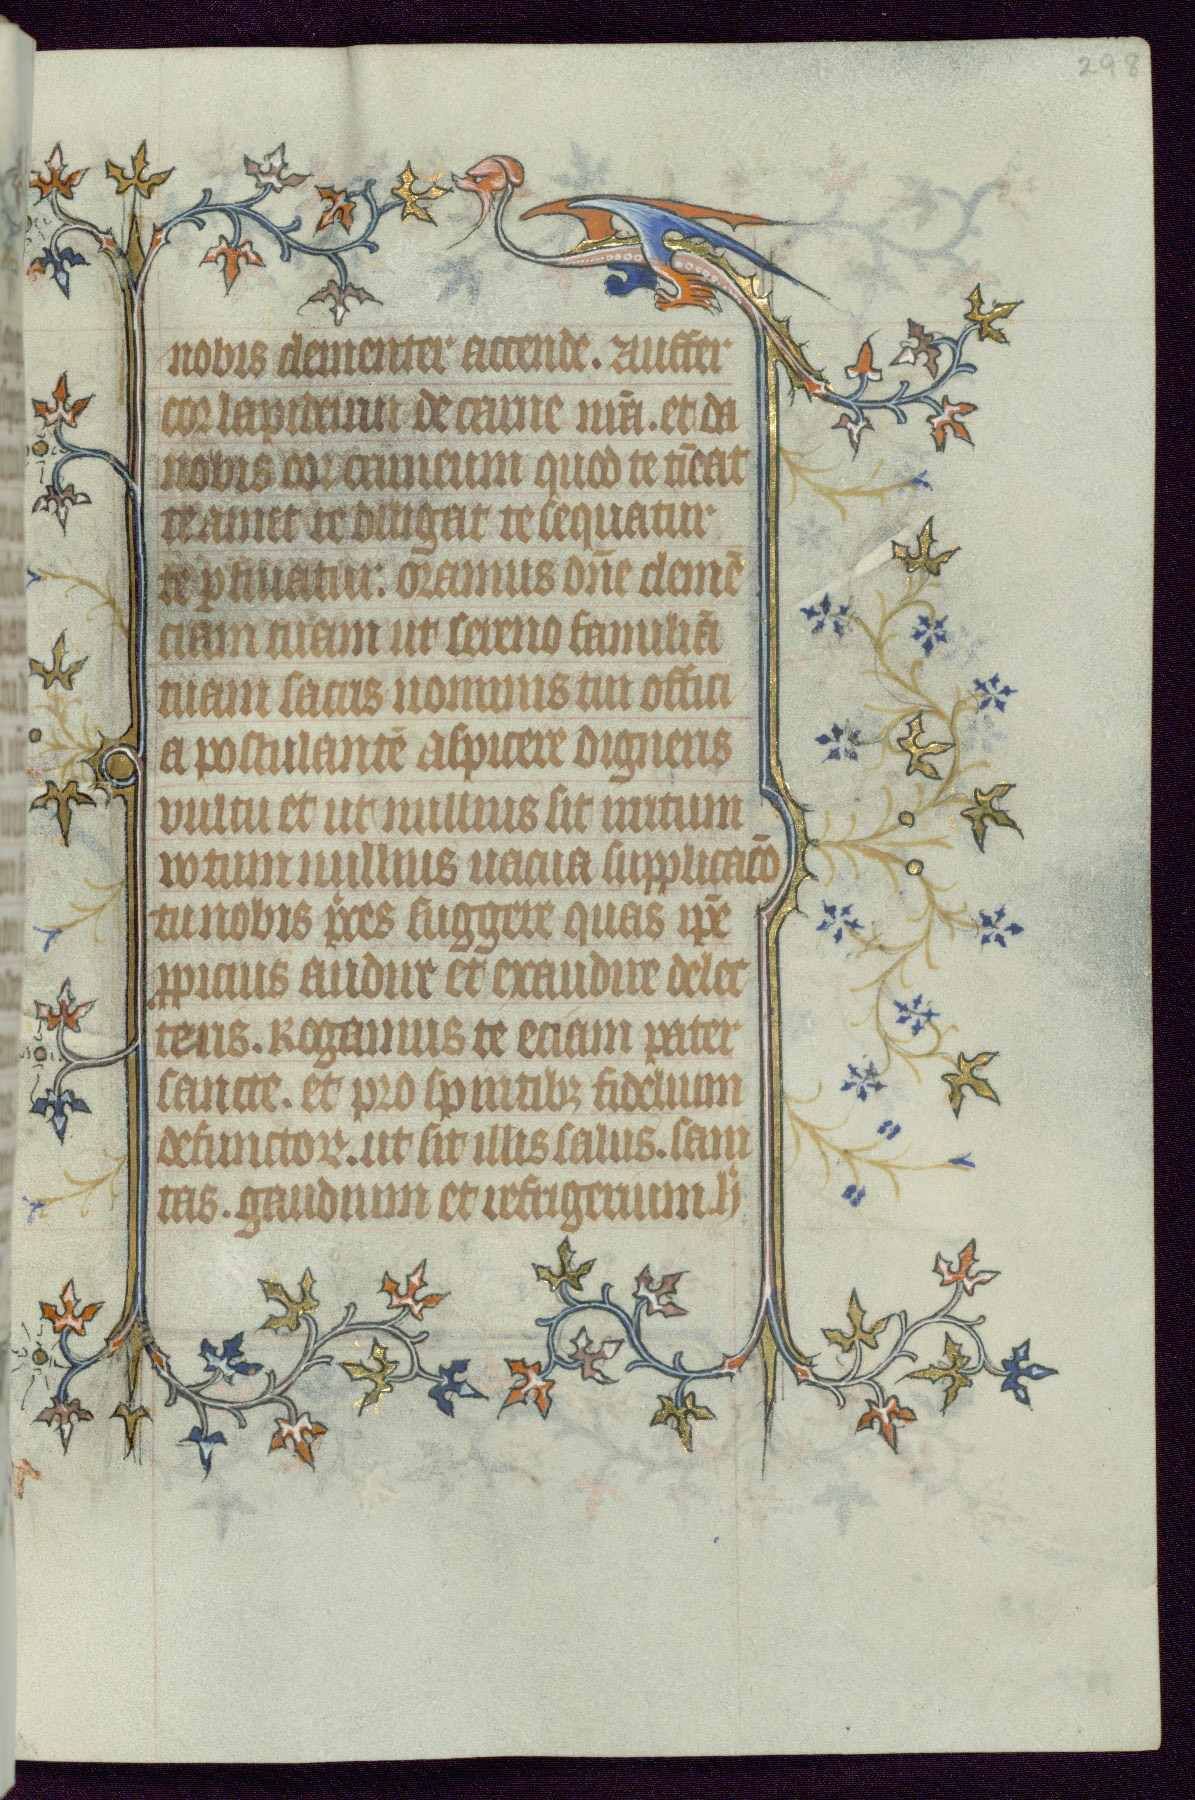 298
nobis clementer accende. Auffer
cor lapideum de carne nr̄a. et da
nobis cor carneum quod te tīeat
te amet te diligat te sequatur
te pfruatur. Oramus dn̄e clemē
ciam tuam ut sereno familiā
tuam sacris nominis tui offici
a postulantē aspicere digneris
vultu et ut nullius sit irritum
votum nullius uacua supplicacō
tu nobis p̄ces suggere quas ip̄e
ppicius audire et exaudire delec
teris. Rogamus te eciam pater
sancte. et pro spiritibꝫ fidelium
defunctoꝝ. ut sit illis salus. sani
tas. gaudium et refrigerium. h̄